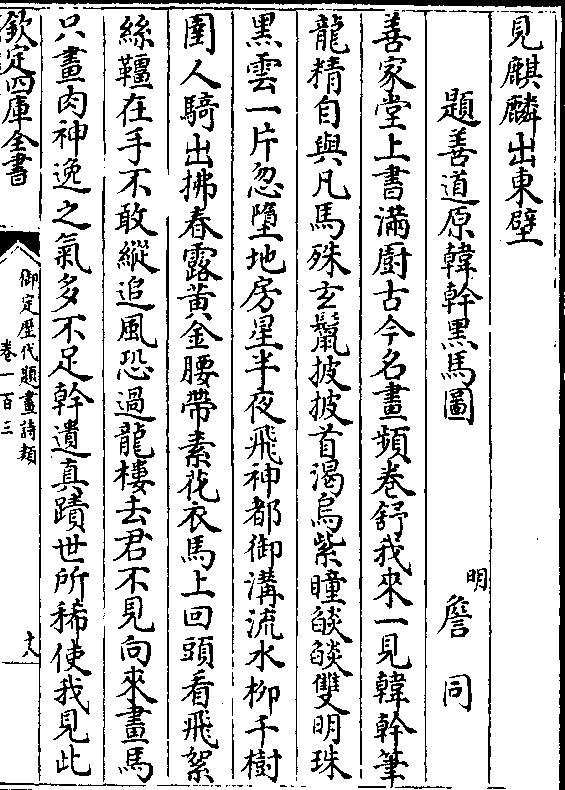 見麒麟出東壁
題善道原韓幹黑馬圖
明 詹同
善家堂上書滿廚古今名畫頻卷舒我來一見韓幹筆
龍精自與凡馬殊玄鬣披披首渴烏紫瞳燄燄雙明珠
黑雲一片忽墮地房星半夜飛神都御溝流水柳千樹
圉人騎出拂春露黃金腰帶素花衣馬上回頭看飛絮
絲韁在手不敢縱追風恐過龍樓去君不見向來畫馬
只畫肉神逸之氣多不足幹遺真蹟世所稀使我見此
欽定四庫全書
御定歷代題畫詩類
卷一百三
十八